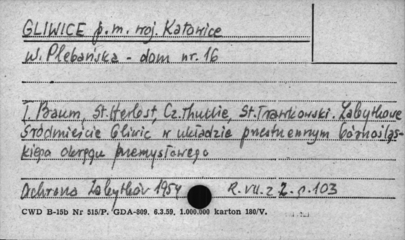 GLIWICE p.m. woj. Katowice
ul. Plebańska - dom nr. 16
T. Baum, St. Herbst, Cz. Thullie, St. Trawkowski. Zabytkowe
Śródmieście Gliwic w układzie przestrzennym Górnośląs-
kiego okręgu przemysłowego
Ochrona Zabytków 1954 R. VII. z 2. s. 103
CWD B-15b Nr 515/P. GDA-809. 6.3.59. 1.000.000 karton 180/V.